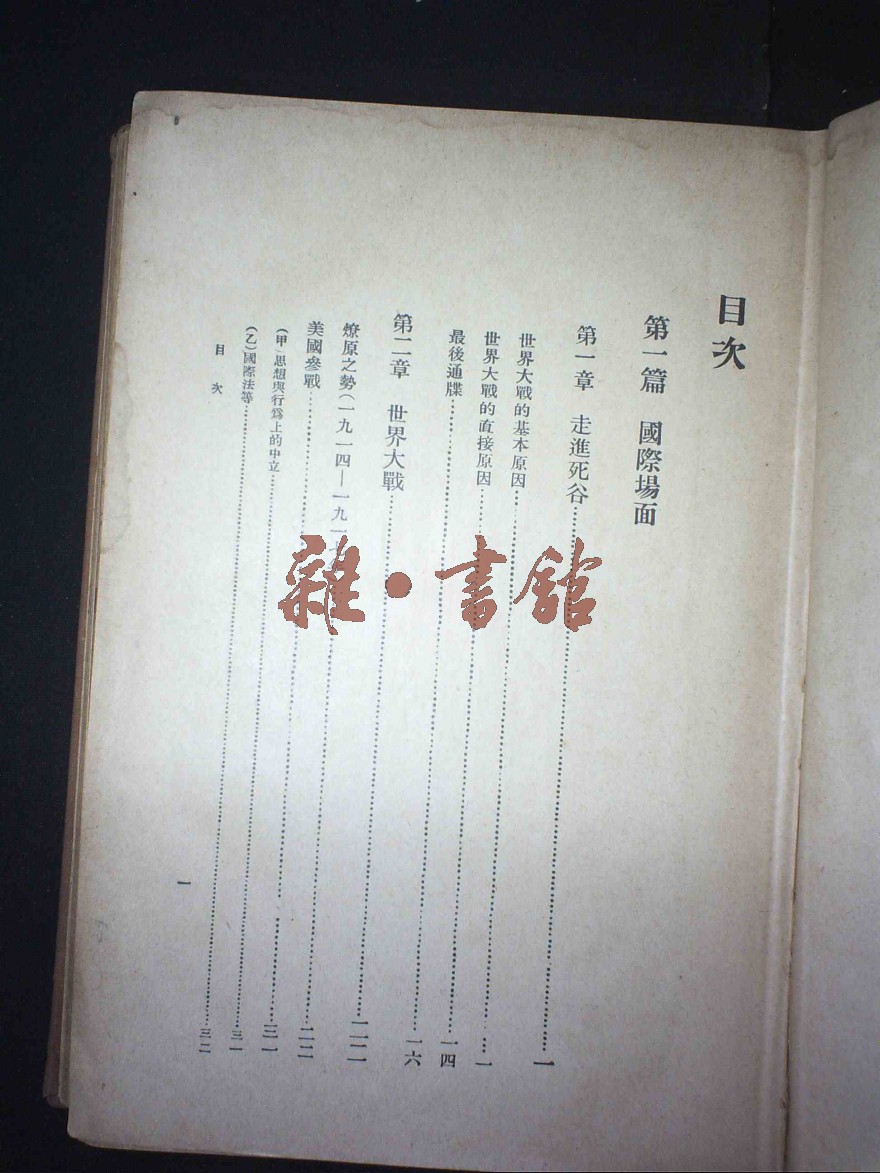 目次
第一篇　國際場面
第一章　走進死谷……一
世界大戰的基本原因……一
世界大戰的直接原因……一四
最後通牒……一六
第二章　世界大戰……二二
燎原之勢(一九一四—一九一七……二二
美國參戰……三一
(甲)思想與行爲上的中立……三一
(乙)國際法等……三二
目次
一
雜•書館